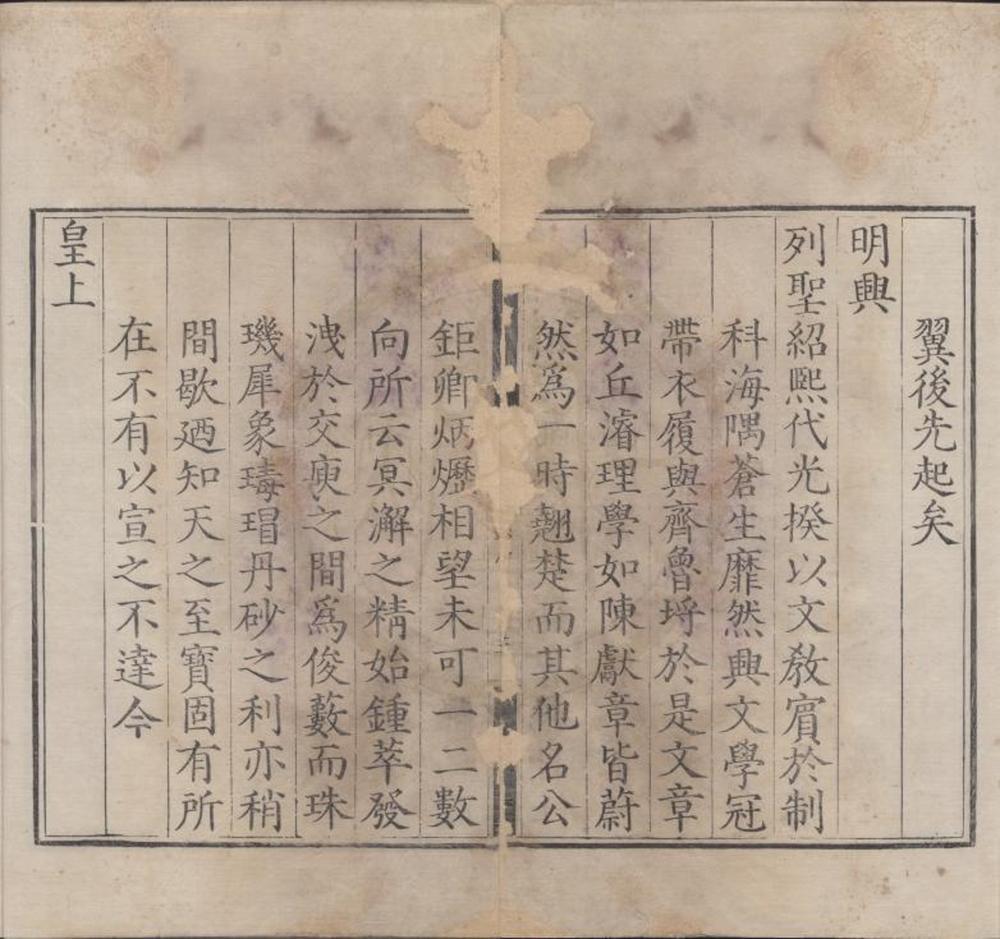 翼後先起矣
明興
列聖紹熙代光揆以文教賓於制
科海隅蒼生靡然興文學冠
帶衣履與齊魯埒於是文章
如丘濬理學如陳獻章皆蔚
然爲一時翹楚而其他名公
鉅卿炳爢相望未可一二數
向所云冥澥之精始鍾萃發
洩於交庾之間爲俊藪而珠
璣犀象瑇瑁丹砂之利亦稍
間歇廼知天之至寶固有所
在不有以宣之不達今
皇上